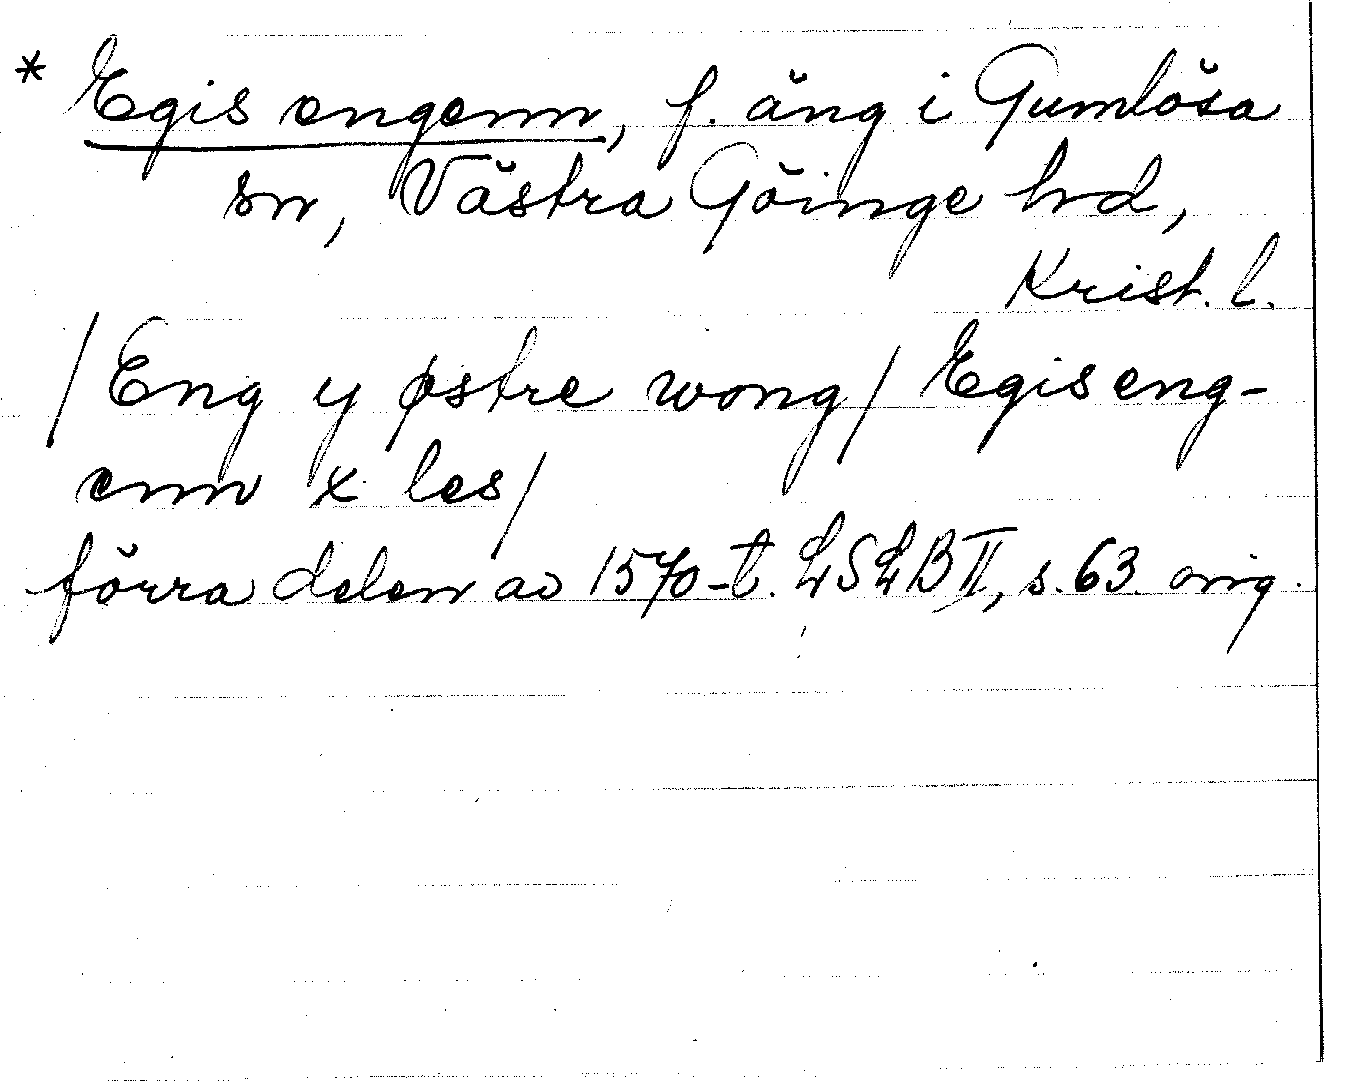 * Egis engenn, f. äng i Gumlösa
sn, Västra Göinge hd,
Krist. l.
/Eng y østre wong/ Egis eng-
enn x les/
förra delen av 1570-t. LSLB II, s. 63. orig.